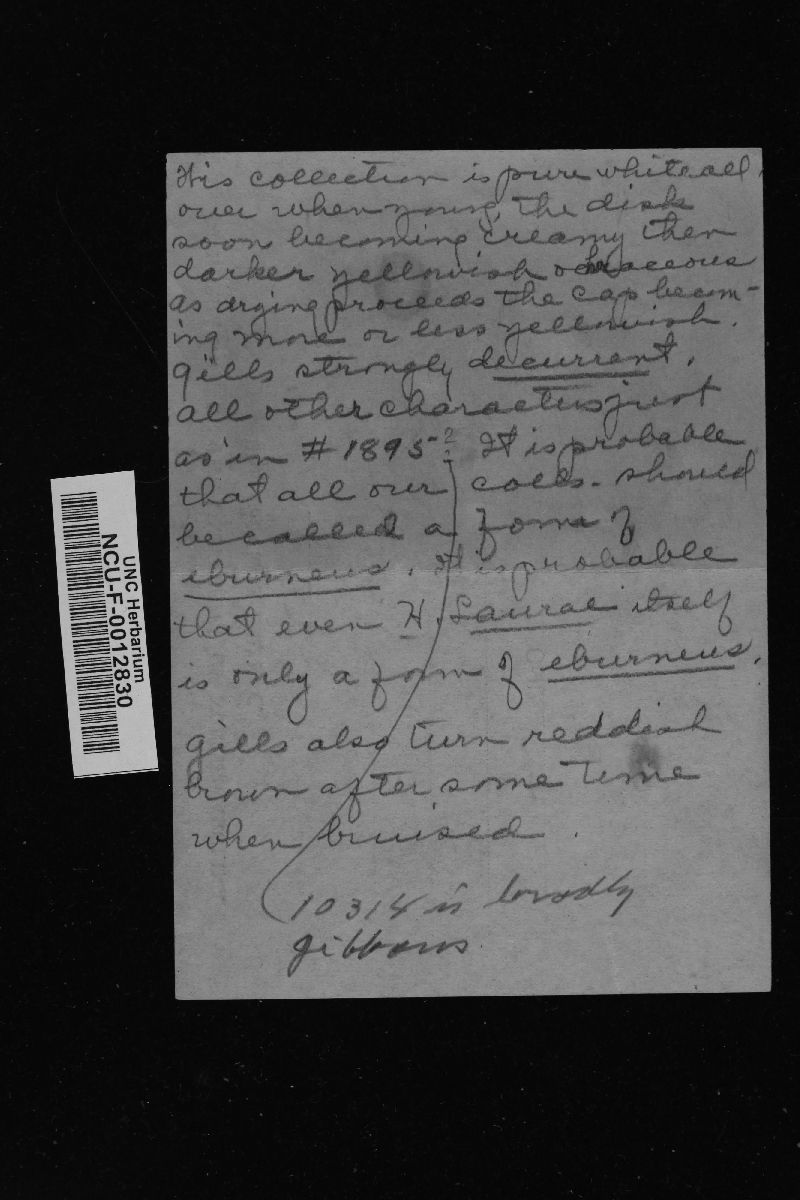 This collection is pure white all
over when young, the disk
soon becoming creamy then
darker yellowish ochraceous
as drying proceeds the cap becom-
ing more or less yellowish.
gills strongly decurrent.
all other characters just
as in # 1895 ? It is probable
that all our colls. should
be called a form of
eburneus. It is probable
that even H. Laurae itself
is only a form of eburneus.
gills also turn reddish
brown after some time
when bruised.
10314 is broadly
gibbous
UNC Herbarium
NCU-F-0012830